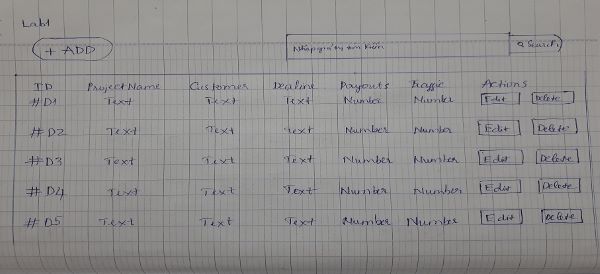 Lab1
+ ADD
Nhập giá trị tìm kiếm Search
ID Project Name Customer Dealine Payouts Traffic Actions
#D1 Text Text Text Number Number Edit Delete
#D2 Text Text Text Number Number Edit Delete
#D3 Text Text Text Number Number Edit Delete
#D4 Text Text Text Number Number Edit Delete
#D5 Text Text Text Number Number Edit Delete